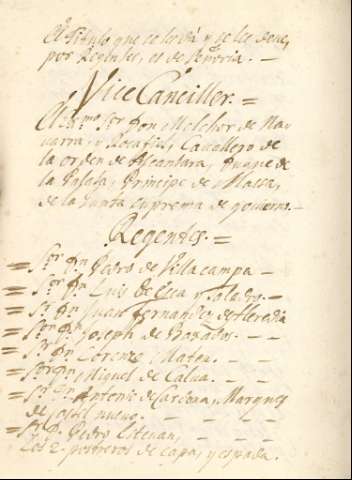 El Titulo que se les dá y se les deve,
por Regentes, es de Señoria. —
Vice Canciller. =
El Ex.mo S.or Don Melchor de Na-
uarra, y Rocafull, Cauallero de
la orden de Alcantara, Duque de
la Palata, Principe de Massa,
de la Junta suprema de gouierno. —
Regentes. =
= S.or D.n Pedro de Villacampa —
= S.or D.n Luis de Exea y Talado. —
= S.r D.n Juan Fernandez de Heredia
= S.or D.n Joseph de Boxados. — —
= S.r D.n Lorenzo Mateu. — —
= S.or D.n Miguel de Calua. — —
= S.r D.n Antonio de Cardona, Marques
de Castelnuovo. — — —
= S.r D. Pedro — —
Los 2. postreros de capa, y espada.